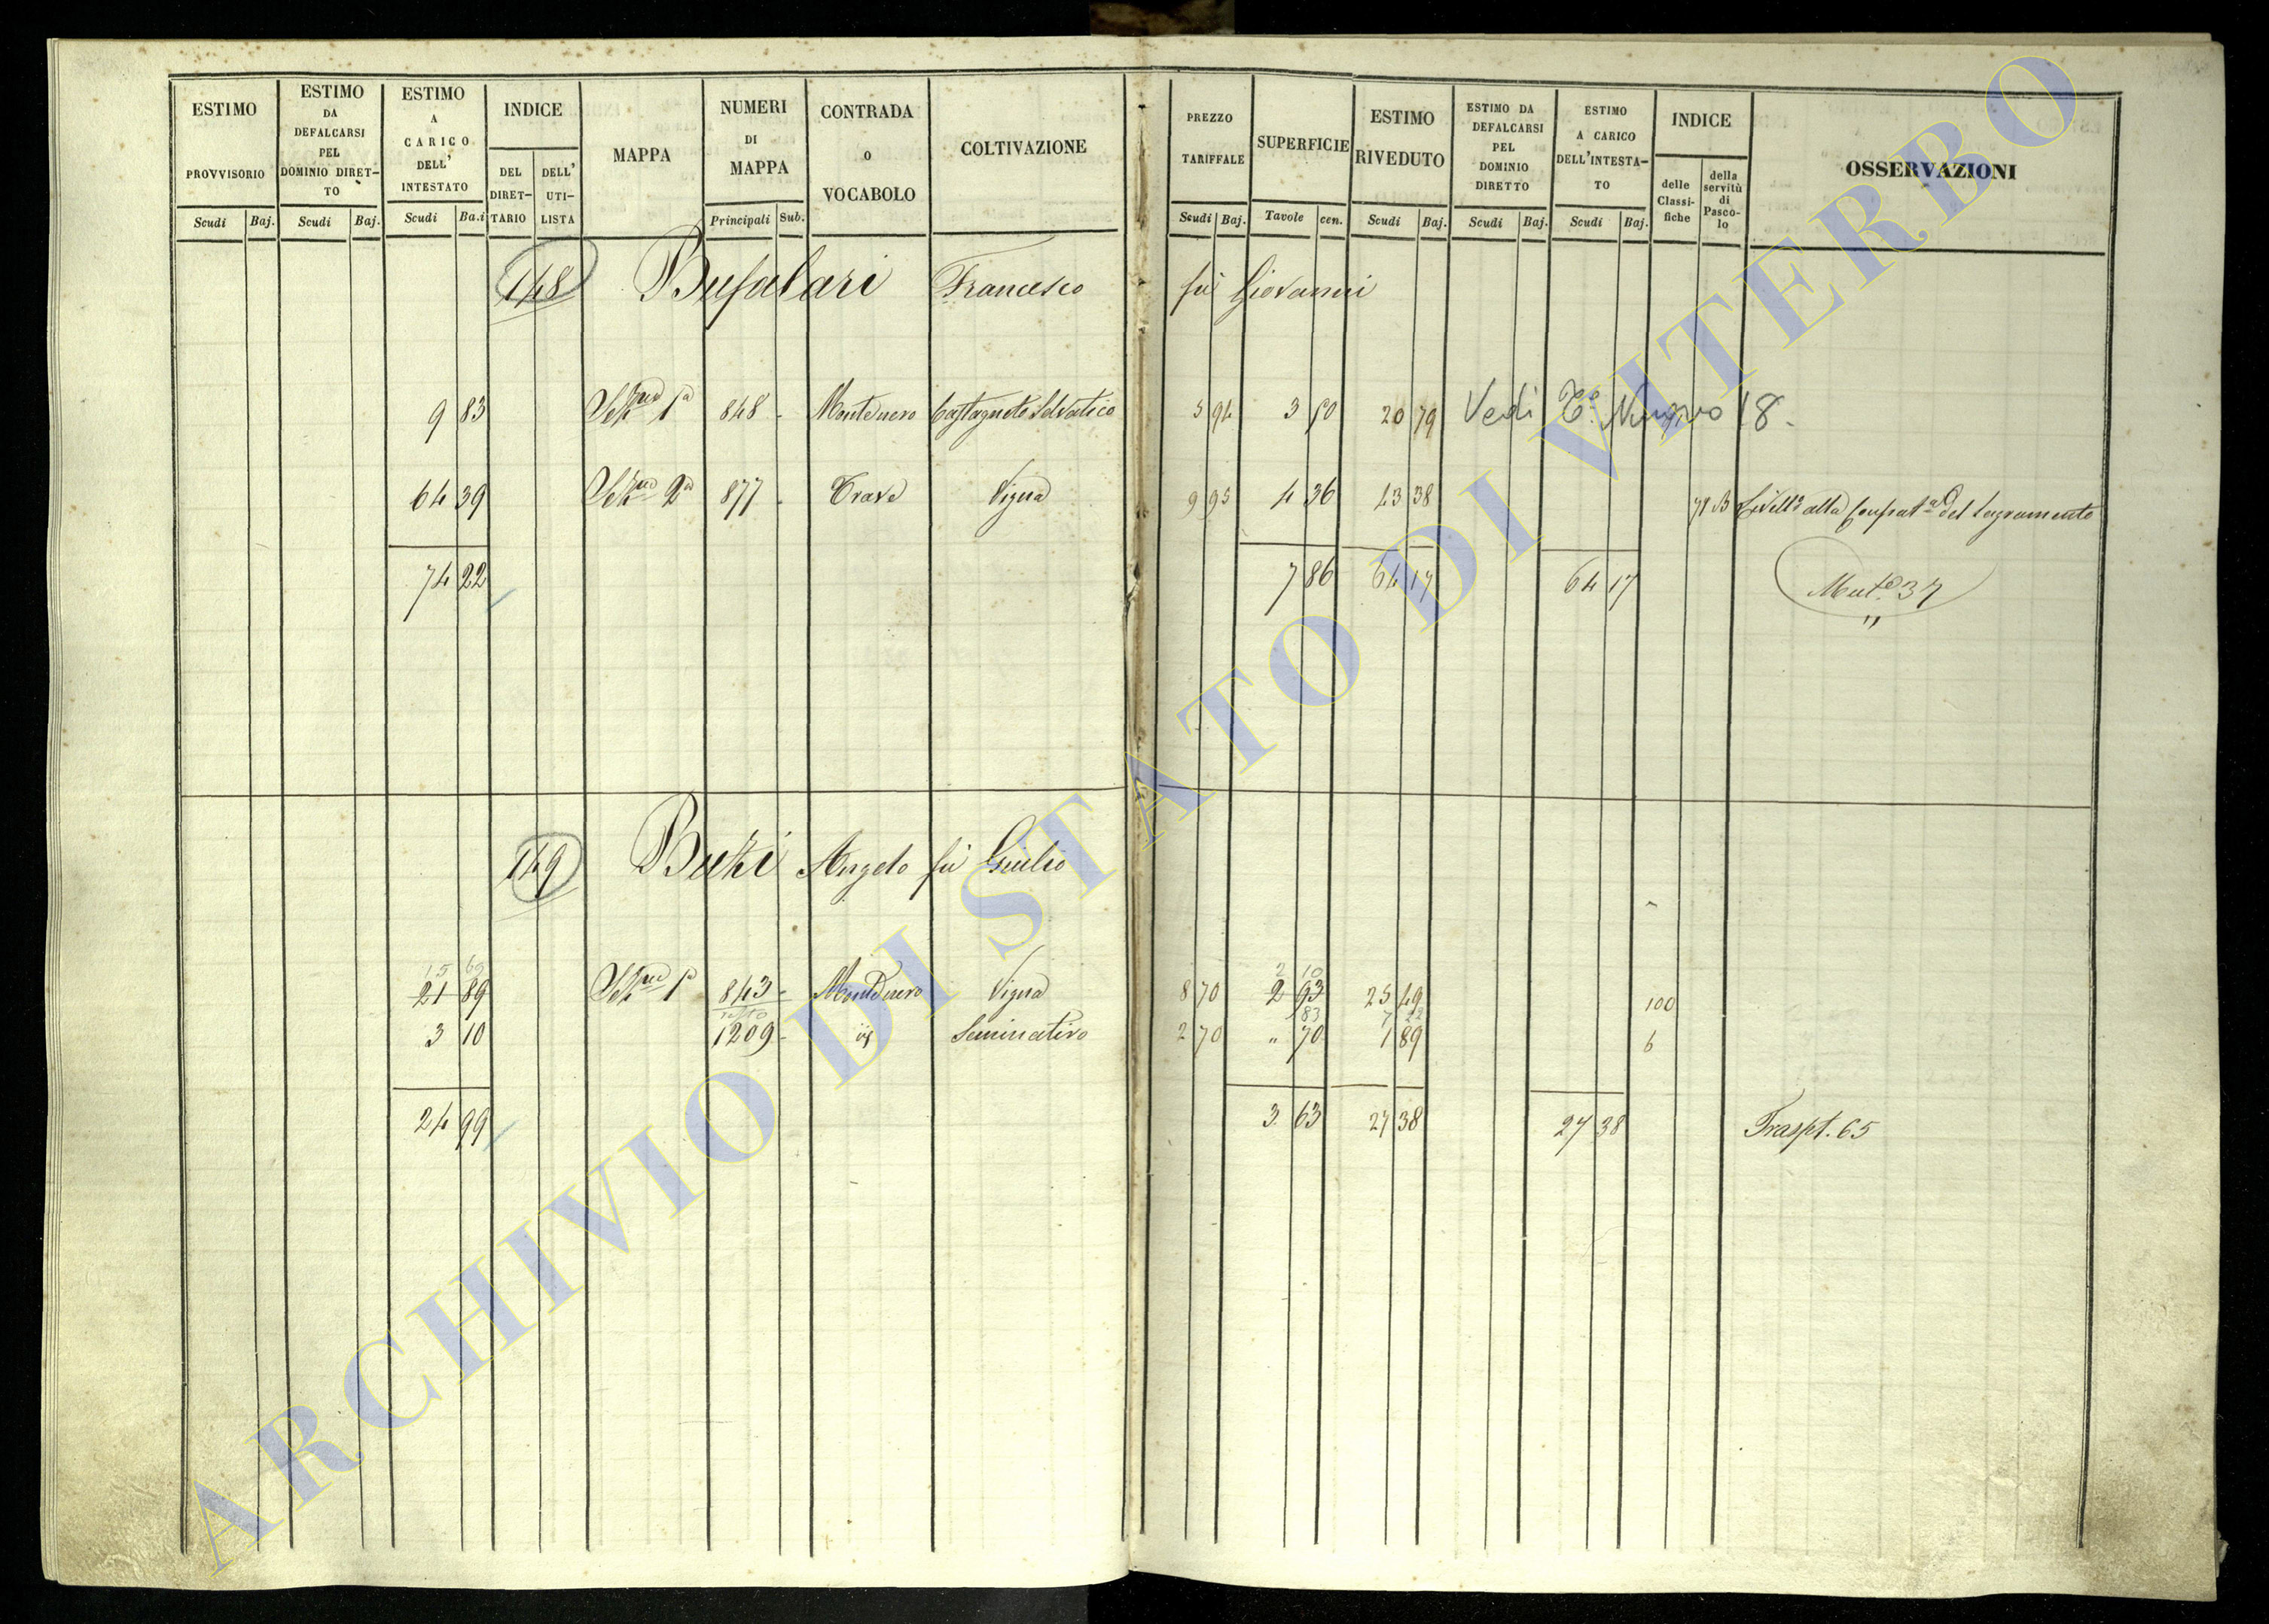 ESTIMO PROVVISORIO
Scudi Baj.
ESTIMO DA DEFALCARSI PEL DOMINIO DIRETTO
Scudi Baj.
ESTIMO A CARICO DELL' INTESTATO
Scudi Ba.i
INDICE
DEL DIRETTARIO
DELL' UTILISTA
MAPPA
NUMERI DI MAPPA
Principali Sub.
CONTRADA O VOCABOLO
COLTIVAZIONE
PREZZO TARIFFALE
Scudi Baj.
SUPERFICIE
Tavole cen.
ESTIMO RIVEDUTO
Scudi Baj.
ESTIMO DA DEFALCARSI PEL DOMINIO DIRETTO
Scudi Baj.
ESTIMO A CARICO DELL'INTESTATO
Scudi Baj.
INDICE
delle Classifiche
della servitù di Pascolo
OSSERVAZIONI
148 Bufalari Francesco fù Giovanni
9 83 1a 848 - Montenero Castagneto Selvatico 5 94 3 50 20 79 Vedi 18.
64 39 2a 877 - Trave Vigna 9 95 4 36 43 38 del Sagramento
74 22 7 86 64 17 64 17 Mut. 37
149 Angelo fù Giulio
15 69 2 10
21 89 1a 843 - Montenero Vigna 8 70 2 93 25 49 100
resto 83 7 22
3 10 1209 - Seminativo 2 70 " 70 1 89 6
24 99 3 63 27 38 27 38 Traspt. 65
ARCHIVIO DI STATO DI VITERBO